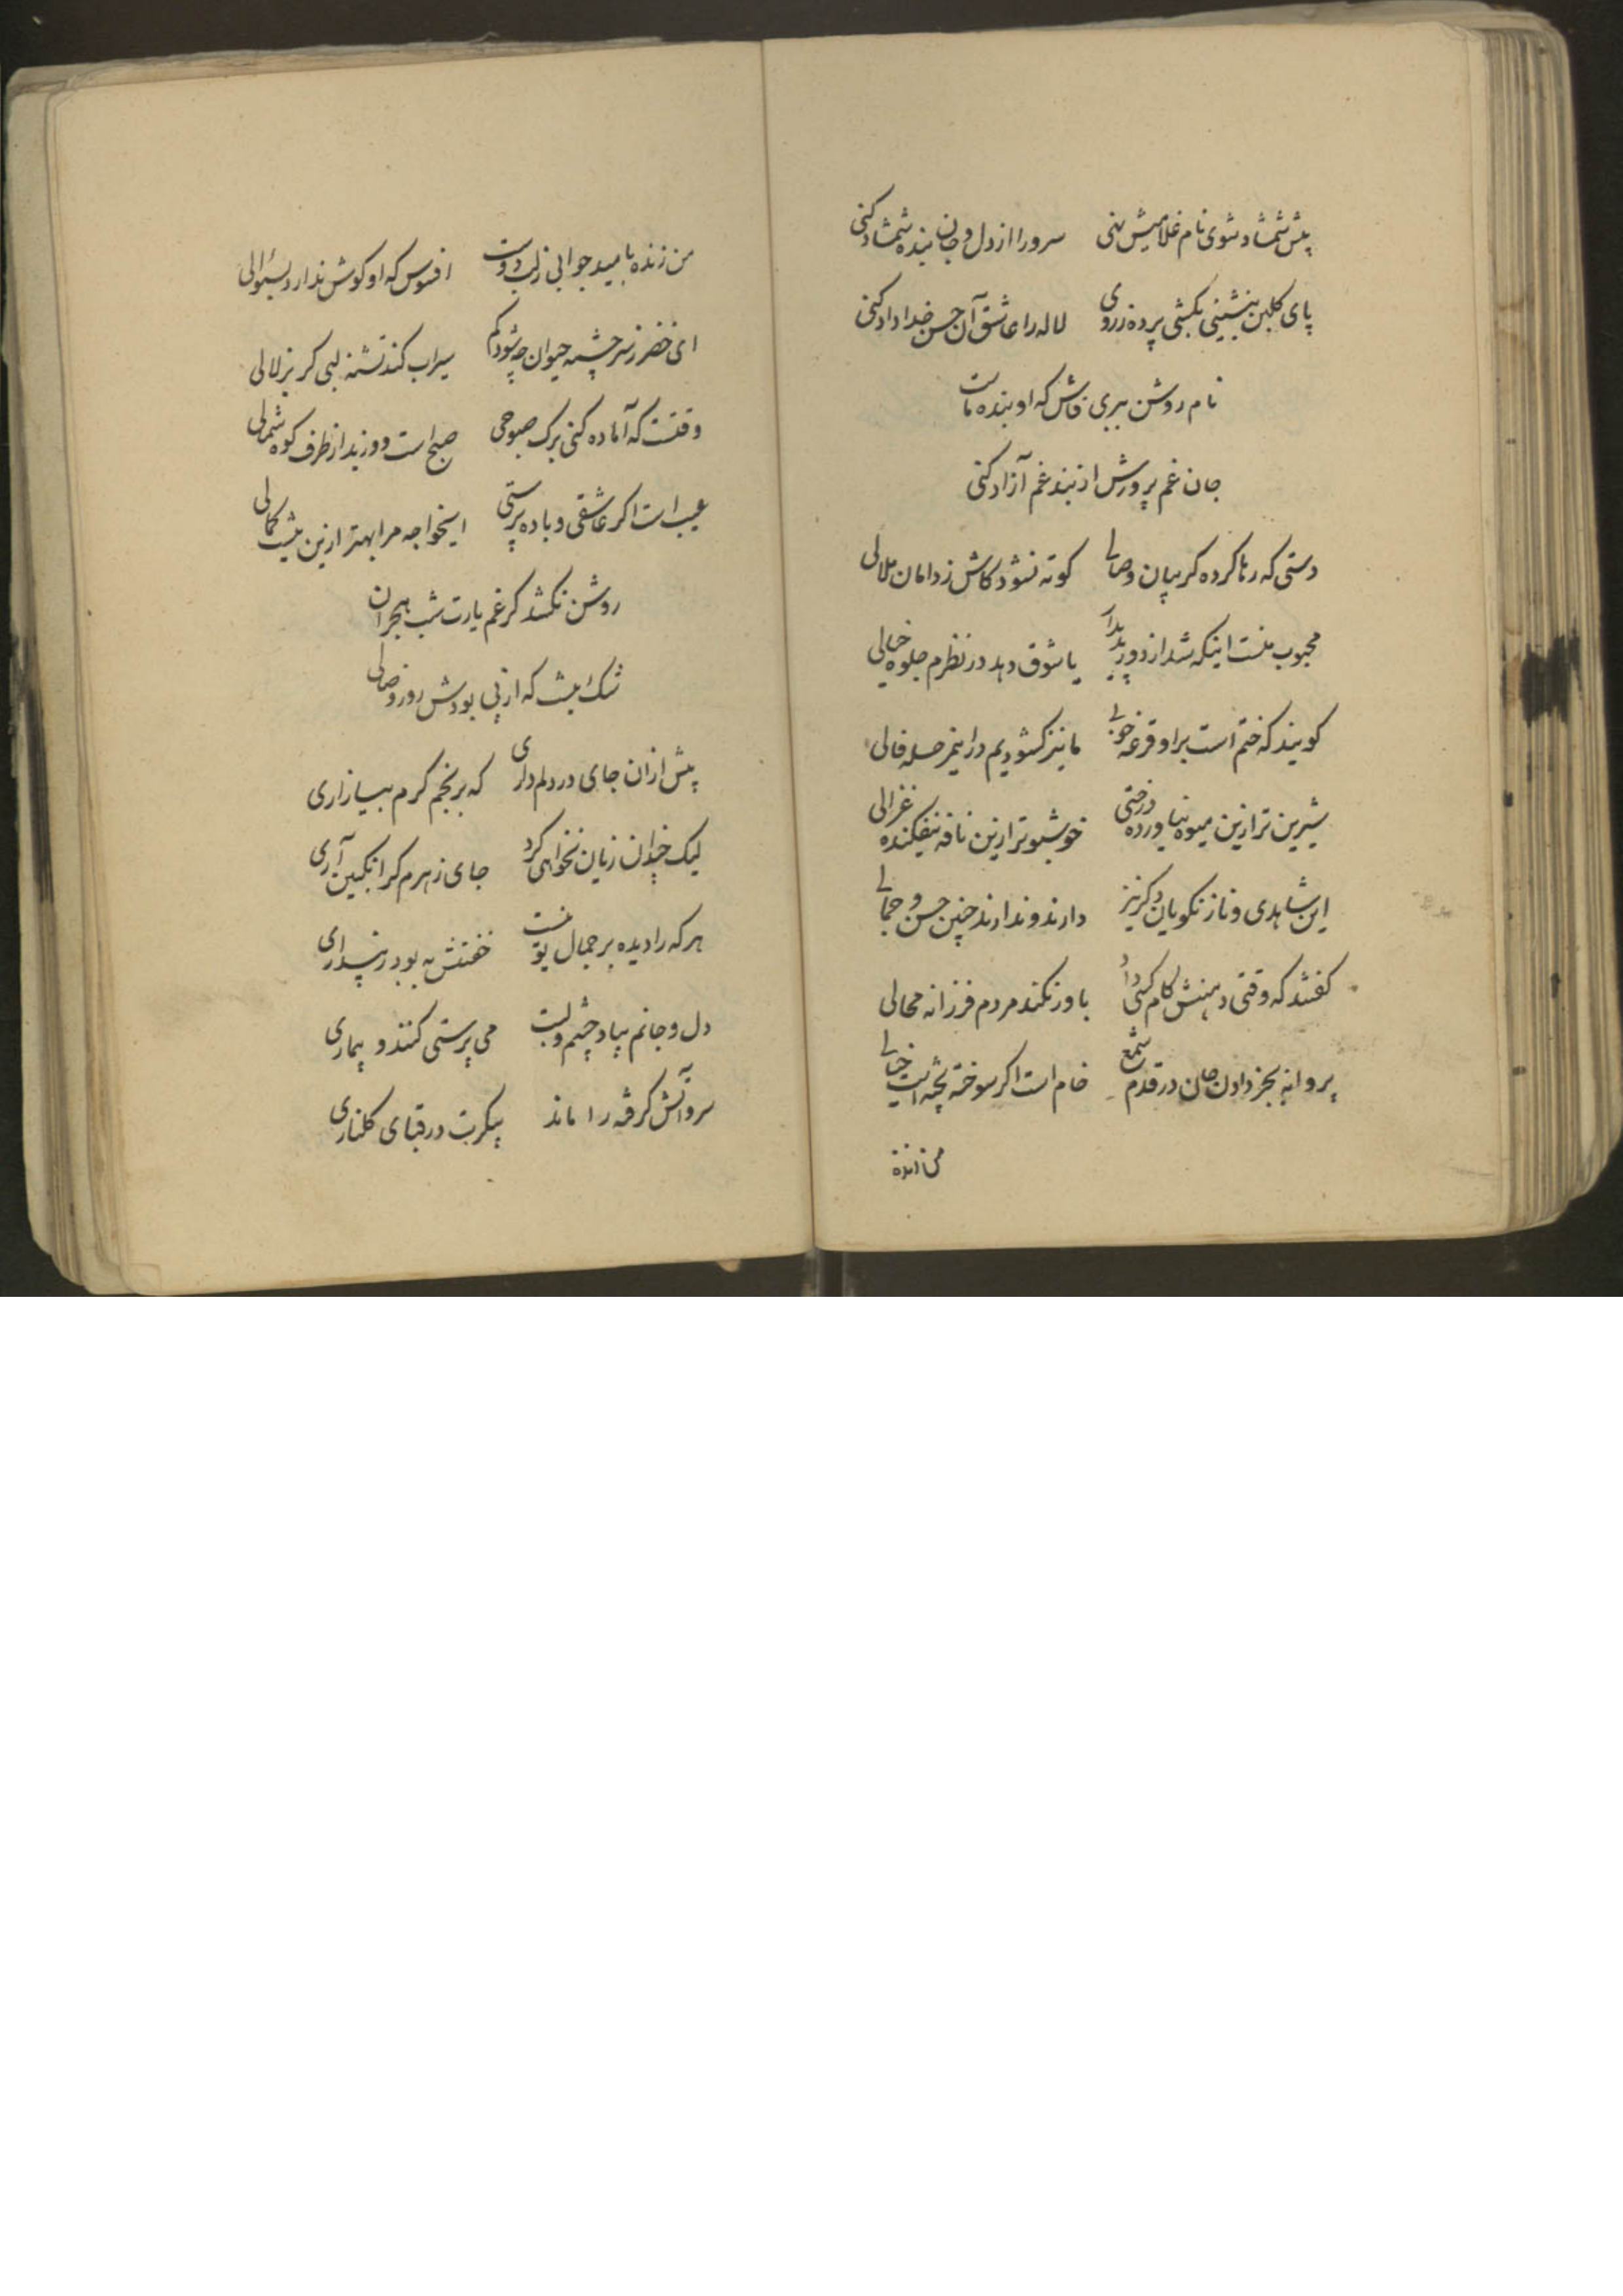 پیش شمشاد شوی نام غلامیش نهی سرو را از دل و جان بنده شمشاد کنی
پای کلبن بنشینی بکشی پرده ز روی لاله را عاشق آن حسن خداداد کنی
نام روشن ببری فاش که او بنده ماست
جان غم پرورش از بند غم آزاد کنی
دستی که رها کرده کریبان وصالی کوته نشود کاش ز دامان ملالی
محبوب منست اینکه شد از دور پدیدار یا شوق دهد در نظرم جلوه خیالی
کویند که ختم است بر او قرعه خوبی ما نیز کشودیم در اینمرحله فالی
شیرین تر ازین میوه نیاورده درختی خوشبو تر ازین نافه نیفکنده غزالی
این شاهدی و ناز نکویان دکر نیز دارند و ندارند چنین حسن و جمالی
کفتند که وقتی دهنش کام کسی داد باور نکند مردم فرزانه محالی
پروانه بجز دادن جان در قدم شمع خام است اکر سوخته پخته است خیالی
من زنده
من زنده بامید جوابی ز لب دوست افسوس که او کوش ندارد بسئوالی
ای خضر ز سرچشمه حیوان چه شود کم سیراب کند تشنه لبی کر بزلالی
وقتست که آماده کنی برک صبوحی صبح است و وزید از طرف کوه شمالی
عیب است اکر عاشقی و باده پرستی ایخواجه مرا بهتر ازین نیست کمالی
روشن نکشد کر غم یارت شب هجران
شک نیست که از پی بودش روز وصالی
پیش ازان جای در دلم داری که برنجم کرم بیازاری
لیک چندان زیان نخواهی کرد جای زهرم کر انکبین آری
هر که را دیده بر جمال تو نیست خفتنش به بود ز بیداری
دل و جانم بیاد چشم و لبت می پرستی کنند و بیماری
سرو آتش کرفته را ماند پیکرت در قبای کلناری